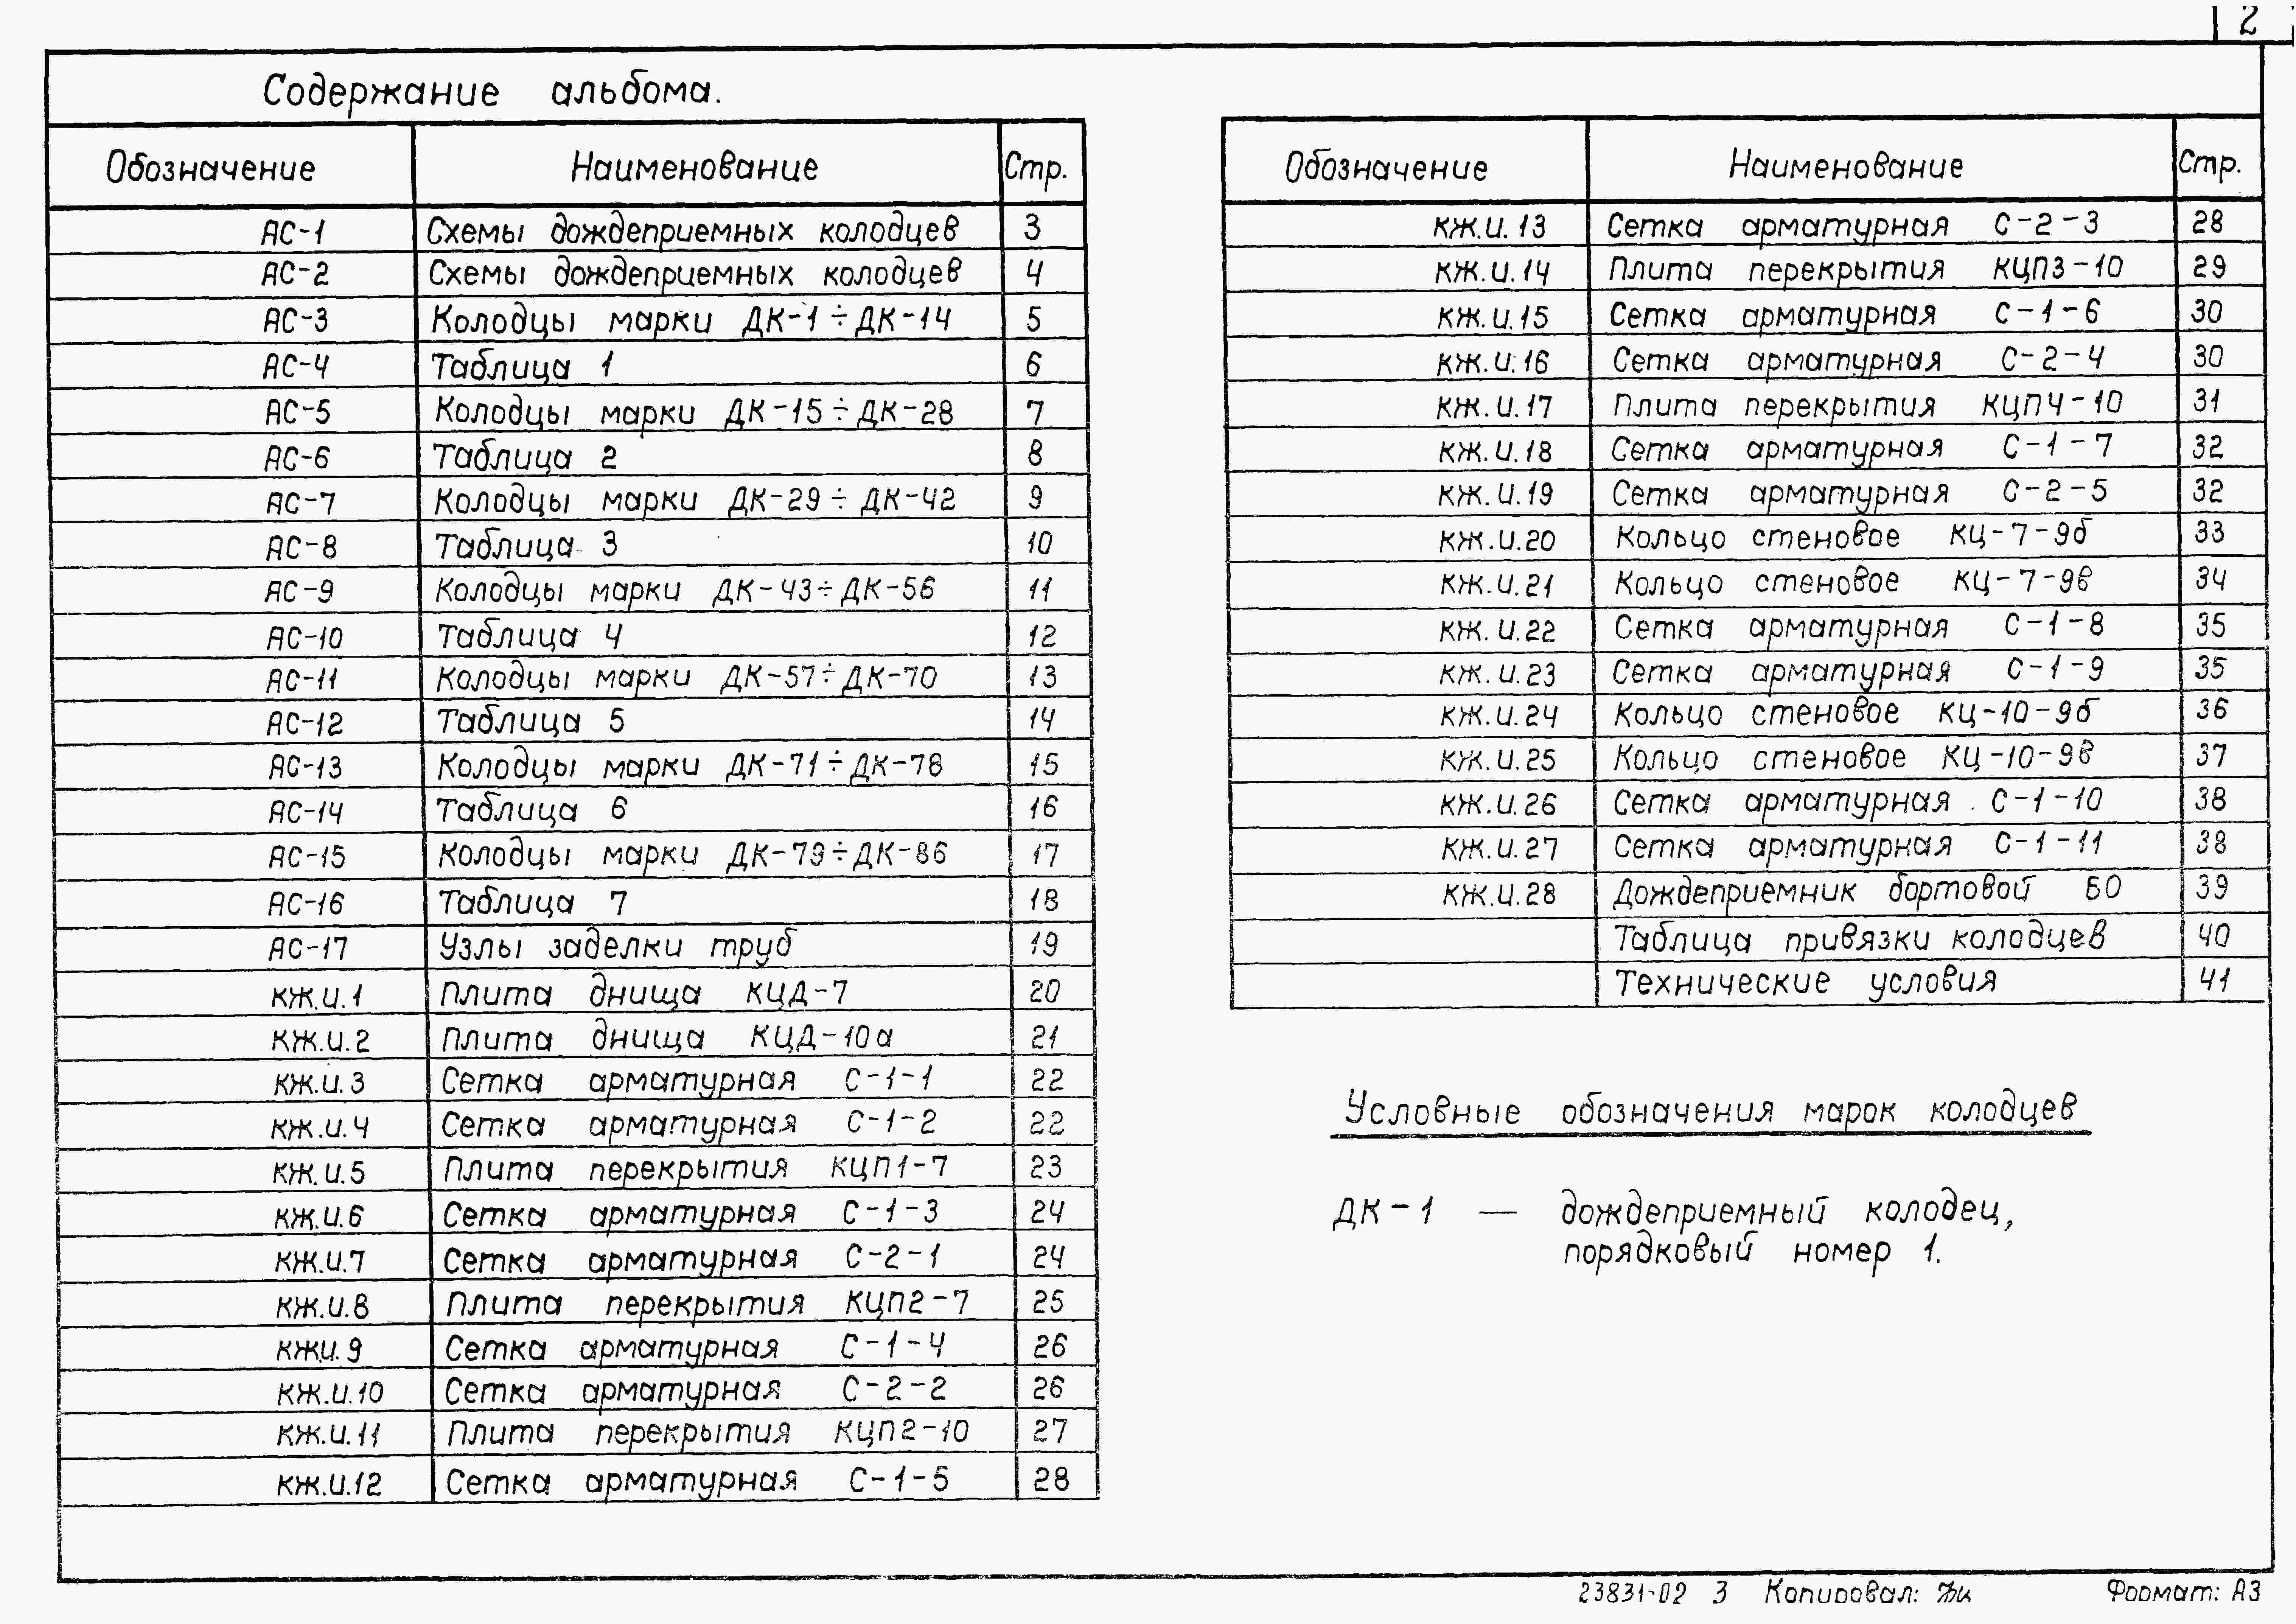 2
Содержание альбома.
Обозначение Наименование Стр.
АС-1 Схемы дождеприемных колодцев 3
АС-2 Схемы дождеприемных колодцев 4
АС-3 Колодцы марки ДК-1÷ДК-14 5
АС-4 Таблица 1 6
АС-5 Колодцы марки ДК-15÷ДК-28 7
АС-6 Таблица 2 8
АС-7 Колодцы марки ДК-29÷ДК-42 9
АС-8 Таблица 3 10
АС-9 Колодцы марки ДК-43÷ДК-56 11
АС-10 Таблица 4 12
АС-11 Колодцы марки ДК-57÷ДК-70 13
АС-12 Таблица 5 14
АС-13 Колодцы марки ДК-71÷ДК-78 15
АС-14 Таблица 6 16
АС-15 Колодцы марки ДК-79÷ДК-86 17
АС-16 Таблица 7 18
АС-17 Узлы заделки труб 19
КЖ.И.1 Плита днища КЦД-7 20
КЖ.И.2 Плита днища КЦД-10а 21
КЖ.И.3 Сетка арматурная С-1-1 22
КЖ.И.4 Сетка арматурная С-1-2 22
КЖ.И.5 Плита перекрытия КЦП1-7 23
КЖ.И.6 Сетка арматурная С-1-3 24
КЖ.И.7 Сетка арматурная С-2-1 24
КЖ.И.8 Плита перекрытия КЦП2-7 25
КЖИ.9 Сетка арматурная С-1-4 26
КЖ.И.10 Сетка арматурная С-2-2 26
КЖ.И.11 Плита перекрытия КЦП2-10 27
КЖ.И.12 Сетка арматурная С-1-5 28
Обозначение Наименование Стр.
КЖ.И.13 Сетка арматурная С-2-3 28
КЖ.И.14 Плита перекрытия КЦП3-10 29
КЖ.И.15 Сетка арматурная С-1-6 30
КЖ.И.16 Сетка арматурная С-2-4 30
КЖ.И.17 Плита перекрытия КЦП4-10 31
КЖ.И.18 Сетка арматурная С-1-7 32
КЖ.И.19 Сетка арматурная С-2-5 32
КЖ.И.20 Кольцо стеновое КЦ-7-9б 33
КЖ.И.21 Кольцо стеновое КЦ-7-9в 34
КЖ.И.22 Сетка арматурная С-1-8 35
КЖ.И.23 Сетка арматурная С-1-9 35
КЖ.И.24 Кольцо стеновое КЦ-10-9б 36
КЖ.И.25 Кольцо стеновое КЦ-10-9в 37
КЖ.И.26 Сетка арматурная С-1-10 38
КЖ.И.27 Сетка арматурная С-1-11 38
КЖ.И.28 Дождеприемник бортовой БО 39
Таблица привязки колодцев 40
Технические условия 41
Условные обозначения марок колодцев
ДК-1 — дождеприемный колодец,
порядковый номер 1.
23831-02 3 Копировал: Формат: А3